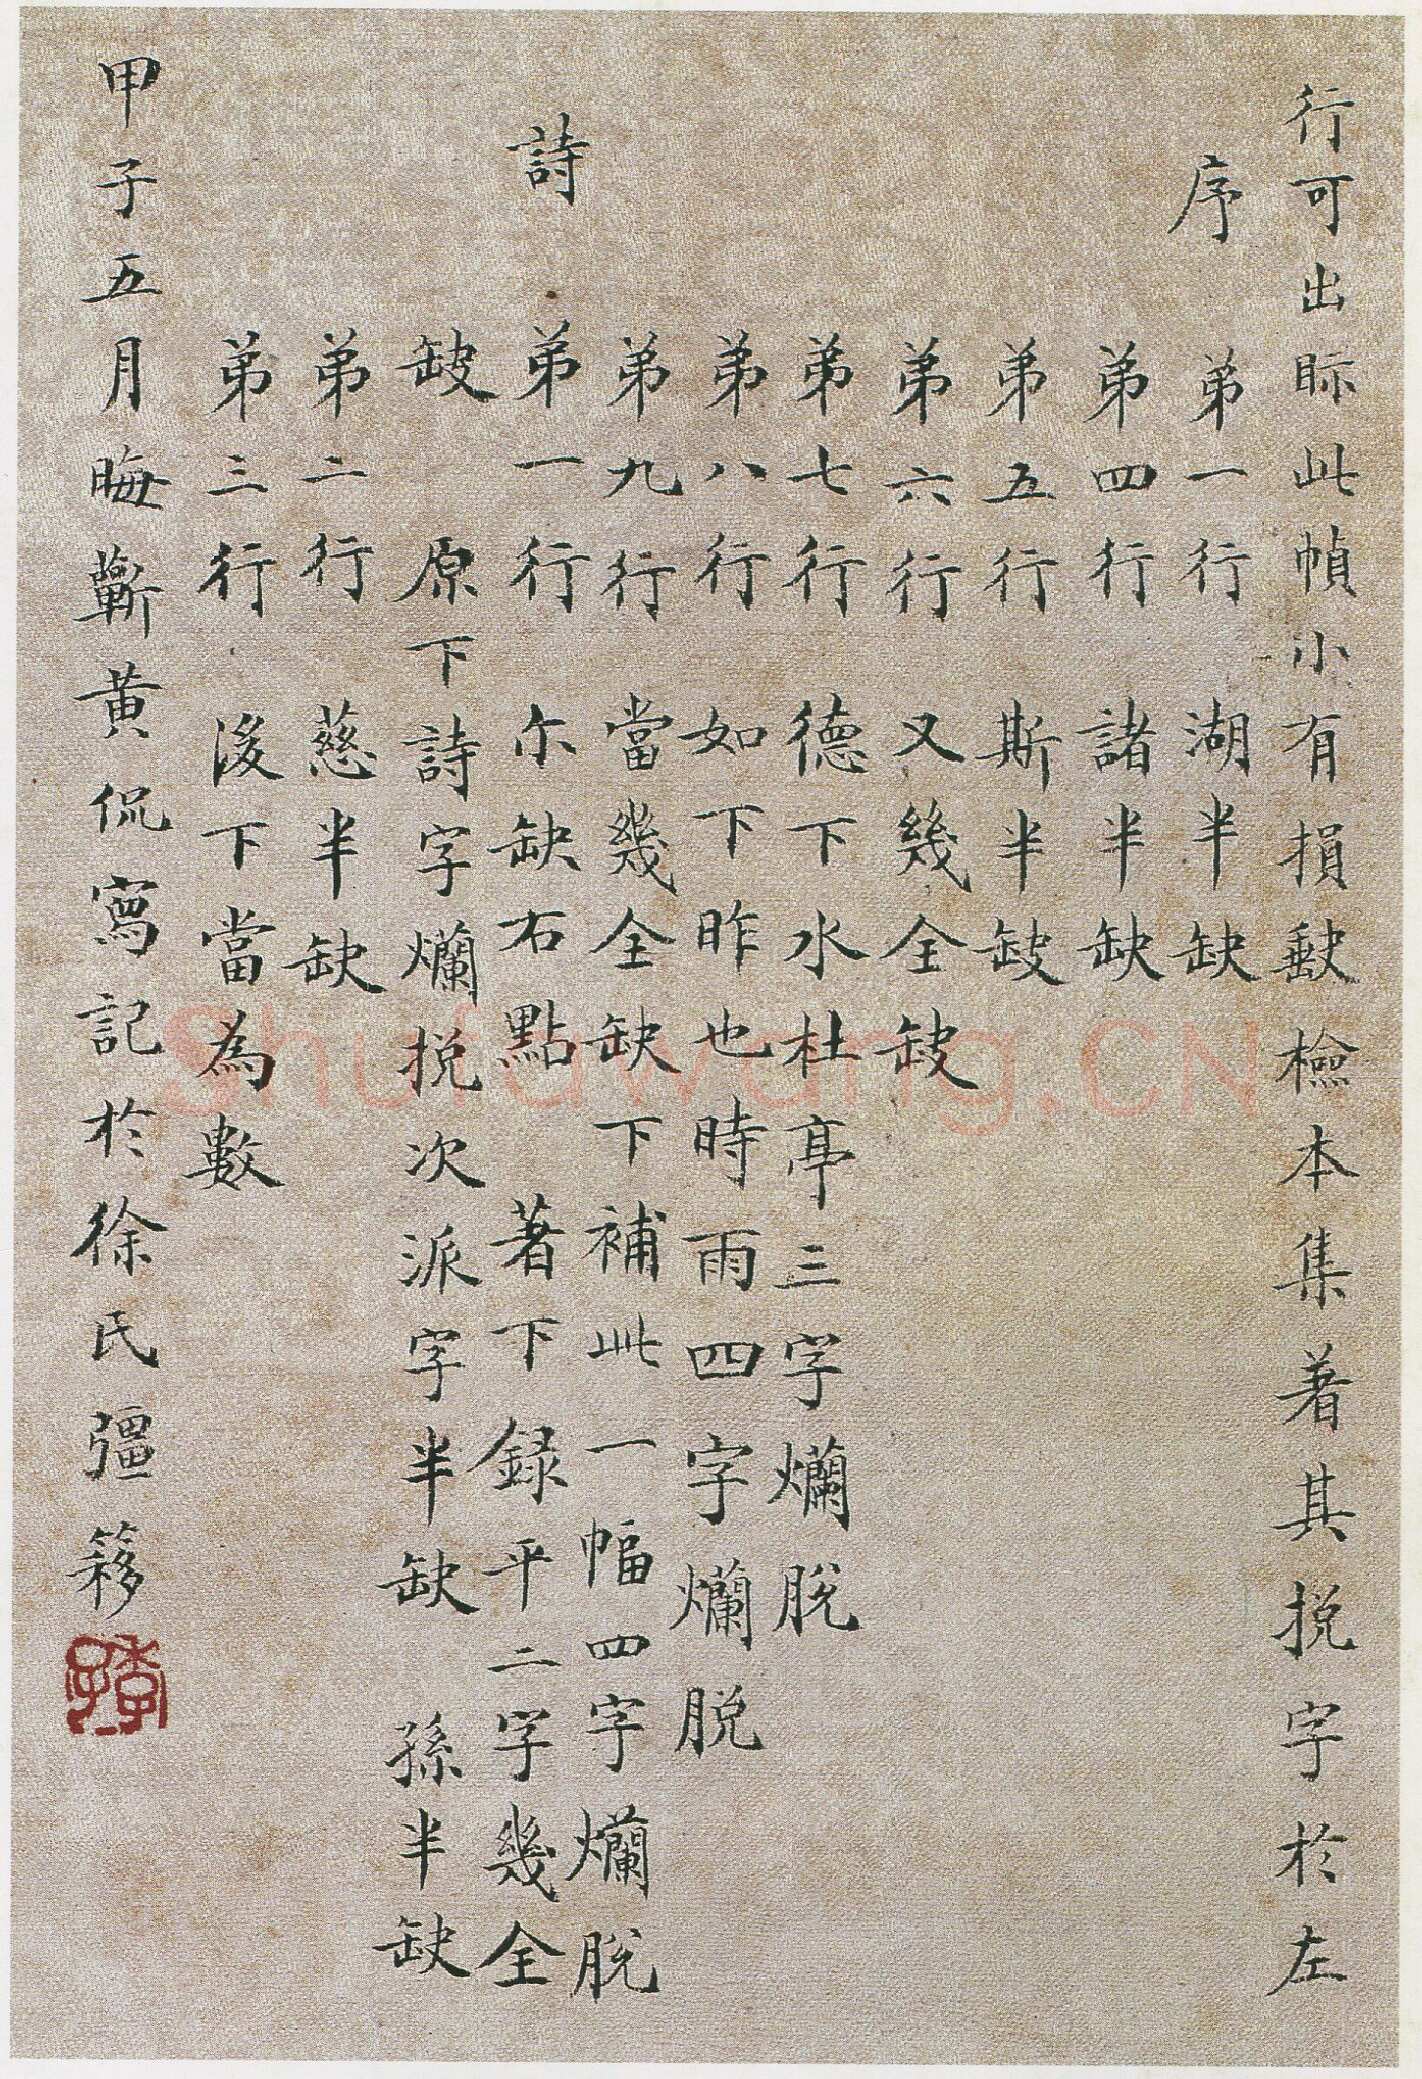 行可出眎此幀小有損𡙇檢本集著其捝字於左
序
弟一行 湖半缺
弟四行 諸半缺
弟五行 斯半䥽
弟六行 又幾全䥽
弟七行 德下水杜亭三字爛脫
弟八行 如下昨也時雨四字爛脫
弟九行 當幾全缺下補此一幅四字爛脫
詩
弟一行 尒缺右點 著下 錄平二字幾全
䥽 原下詩字爛捝次派字半缺 孫半缺
弟二行 慈半缺
弟三行 後下當為數
甲子五月晦蘄黃侃寫記於徐氏彊簃
Shufawang.CN